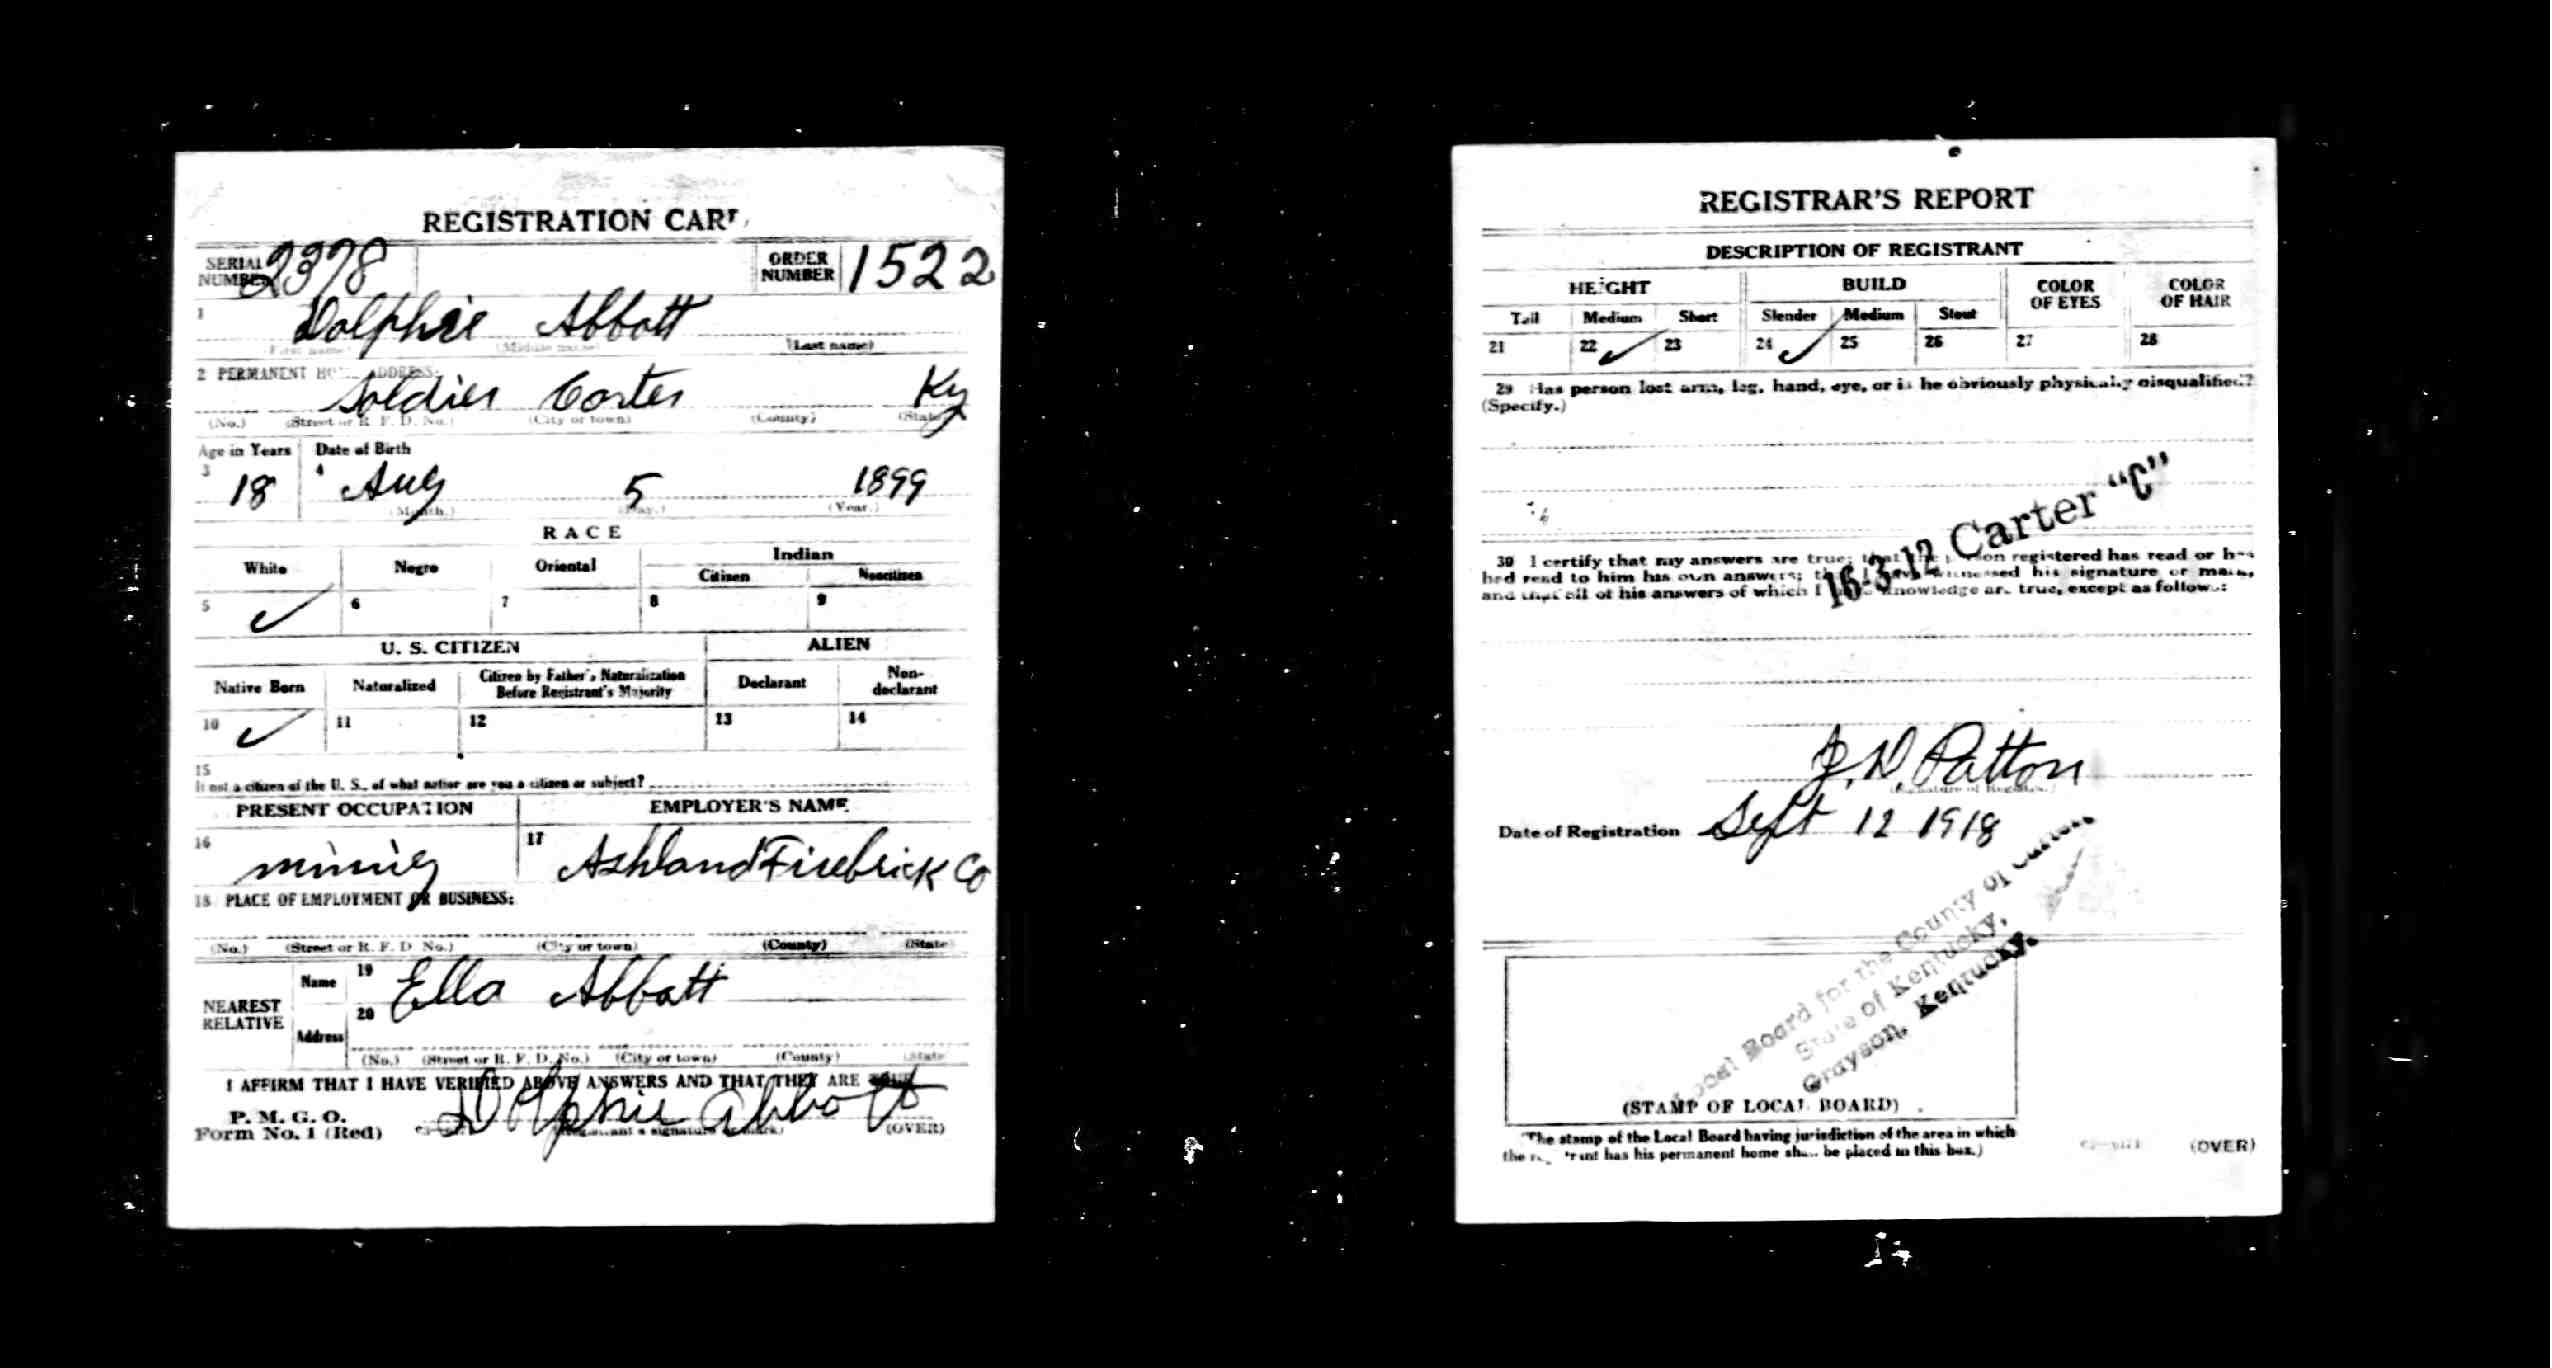 REGISTRATION CARD
SERIAL NUMBER 2378 ORDER NUMBER 1522
1 Dolphie Abbott
(First name) (Middle name) (Last name)
2 PERMANENT HOME ADDRESS:
Soldier Carter Ky
(No.) (Street or R. F. D. No.) (City or town) (County) (State)
Age in Years Date of Birth
3 18 4 Aug 5 1899
(Month.) (Day.) (Year.)
RACE
White Negro Oriental Indian
Citizen Noncitizen
5 ✓ 6 7 8 9
U. S. CITIZEN ALIEN
Native Born Naturalized Citizen by Father's Naturalization Before Registrant's Majority Declarant Non-declarant
10 ✓ 11 12 13 14
15
If not a citizen of the U. S., of what nation are you a citizen or subject?
PRESENT OCCUPATION EMPLOYER'S NAME
16 mining 17 Ashland Firebrick Co
18 PLACE OF EMPLOYMENT OR BUSINESS:
(No.) (Street or R. F. D. No.) (City or town) (County) (State)
NEAREST RELATIVE Name 19 Ella Abbott
Address 20
(No.) (Street or R. F. D. No.) (City or town) (County) (State)
I AFFIRM THAT I HAVE VERIFIED ABOVE ANSWERS AND THAT THEY ARE TRUE
P. M. G. O.
Form No. 1 (Red) Dolphie Abbott
(Registrant's signature or mark) (OVER)
REGISTRAR'S REPORT
DESCRIPTION OF REGISTRANT
HEIGHT BUILD COLOR OF EYES COLOR OF HAIR
Tall Medium Short Slender Medium Stout
21 22 ✓ 23 24 ✓ 25 26 27 28
29 Has person lost arm, leg, hand, eye, or is he obviously physically disqualified?
(Specify.)
16-3-12 Carter "C"
30 I certify that my answers are true; that the person registered has read or has
had read to him his own answers; that I have witnessed his signature or mark,
and that all of his answers of which I have knowledge are true, except as follows:
J. N. Patton
(Signature of Registrar.)
Date of Registration Sept 12 1918
Local Board for the County of Carter,
State of Kentucky,
Grayson, Kentucky.
(STAMP OF LOCAL BOARD)
(The stamp of the Local Board having jurisdiction of the area in which
the registrant has his permanent home shall be placed in this box.)
(OVER)